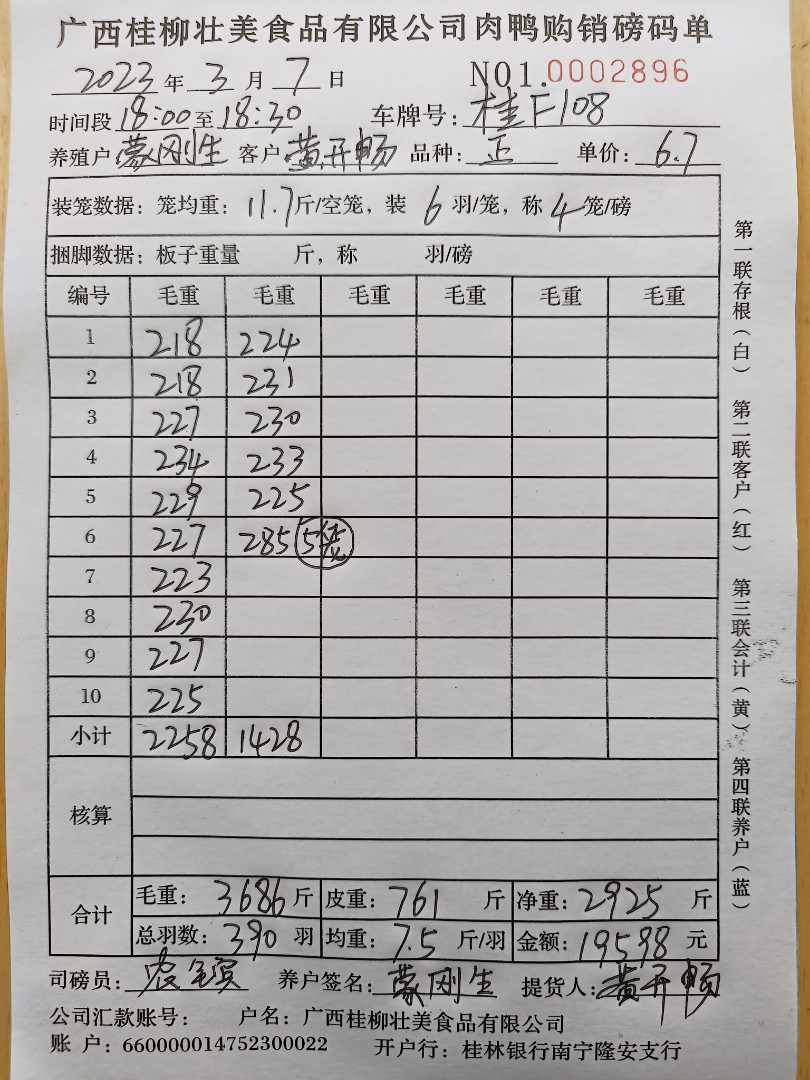 广西桂柳壮美食品有限公司肉鸭购销磅码单
2023年3月7日 NO1.0002896
时间段18:00至18:30 车牌号:桂F108
养殖户蒙刚生 客户黄开畅 品种:正 单价:6.7
装笼数据：笼均重：11.7斤/空笼，装6羽/笼，称4笼/磅
捆脚数据：板子重量 斤，称 羽/磅
编号 毛重 毛重 毛重 毛重 毛重 毛重
1 218 224
2 218 231
3 227 230
4 234 233
5 229 225
6 227 285 5笼
7 223
8 230
9 227
10 225
小计 2258 1428
核算
合计 毛重：3686斤 皮重：761斤 净重：2925斤
总羽数：390羽 均重：7.5斤/羽 金额：19598元
司磅员： 养户签名：蒙刚生 提货人：黄开畅
公司汇款账号： 户名：广西桂柳壮美食品有限公司
账户：660000014752300022 开户行：桂林银行南宁隆安支行
第一联存根（白） 第二联客户（红） 第三联会计（黄） 第四联养户（蓝）